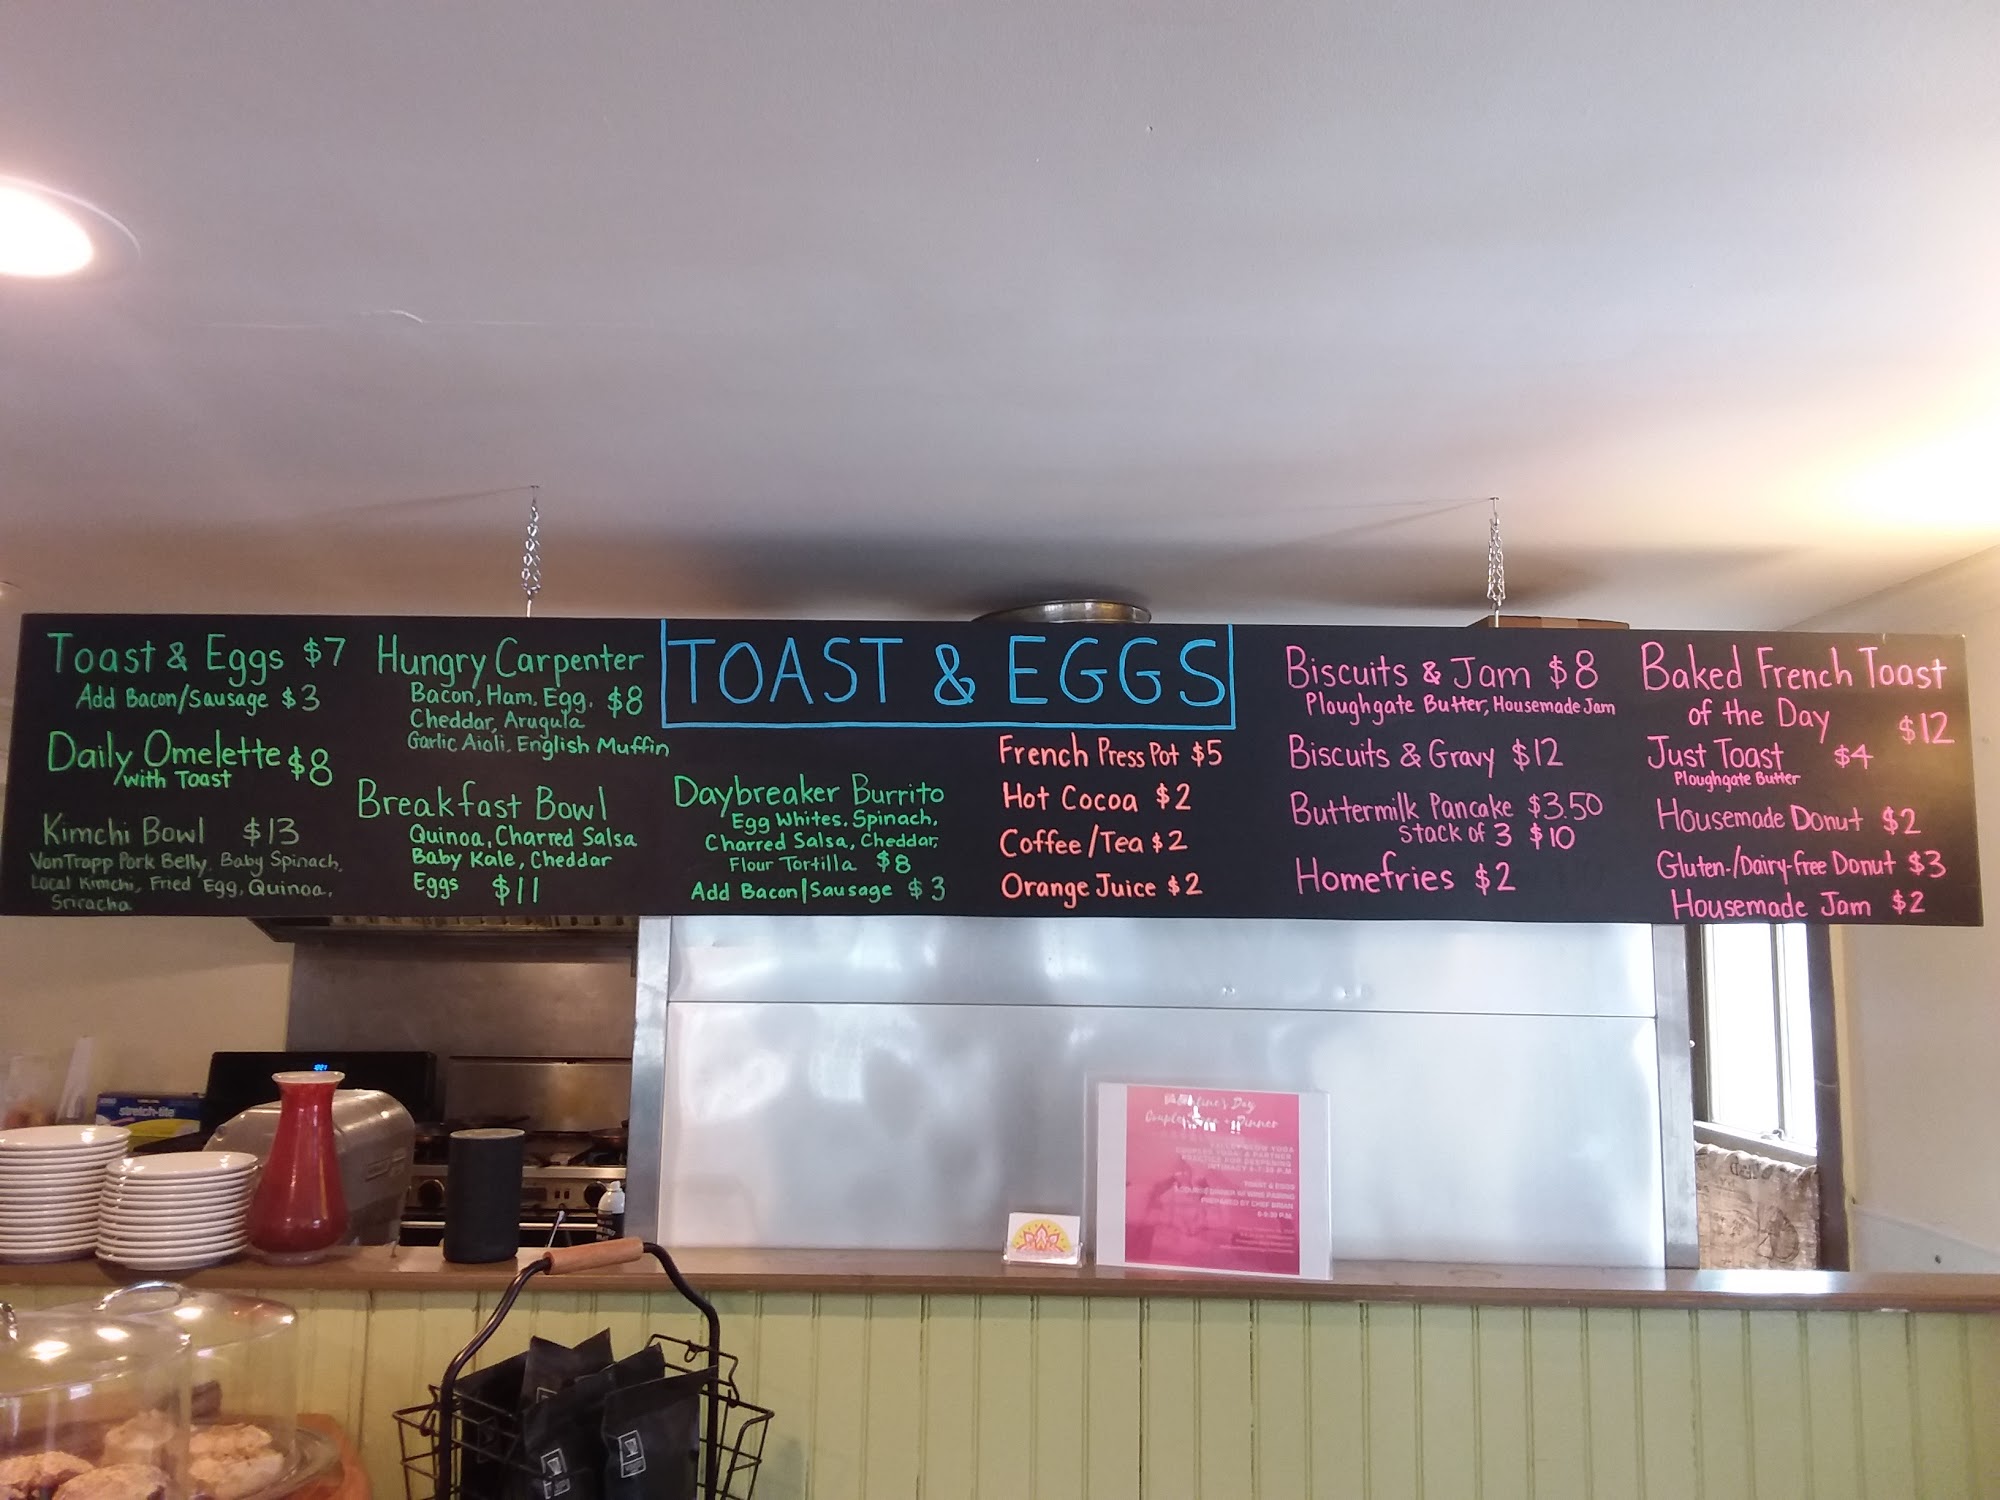 Toast & Eggs $7
Add Bacon/Sausage $3
Daily Omelette $8
with Toast
Kimchi Bowl $13
VonTrapp Pork Belly, Baby Spinach,
Local Kimchi, Fried Egg, Quinoa,
Sriracha
Hungry Carpenter
Bacon, Ham, Egg, $8
Cheddar, Arugula
Garlic Aioli, English Muffin
Breakfast Bowl
Quinoa, Charred Salsa
Baby Kale, Cheddar
Eggs $11
TOAST & EGGS
Daybreaker Burrito
Egg Whites, Spinach,
Charred Salsa, Cheddar,
Flour Tortilla $8
Add Bacon/Sausage $3
French Press Pot $5
Hot Cocoa $2
Coffee/Tea $2
Orange Juice $2
Biscuits & Jam $8
Ploughgate Butter, Housemade Jam
Biscuits & Gravy $12
Buttermilk Pancake $3.50
Stack of 3 $10
Homefries $2
Baked French Toast
of the Day $12
Just Toast $4
Ploughgate Butter
Housemade Donut $2
Gluten-/Dairy-free Donut $3
Housemade Jam $2
stretch-tite
Valentine's Day
Dinner
YOGA
COUPLES YOGA: A PARTNER
PRACTICE FOR DEEPENING
INTIMACY 6-7:30 P.M.
TOAST & EGGS
DINNER W/ WINE PAIRING
PREPARED BY CHEF BRIAN
P.M.